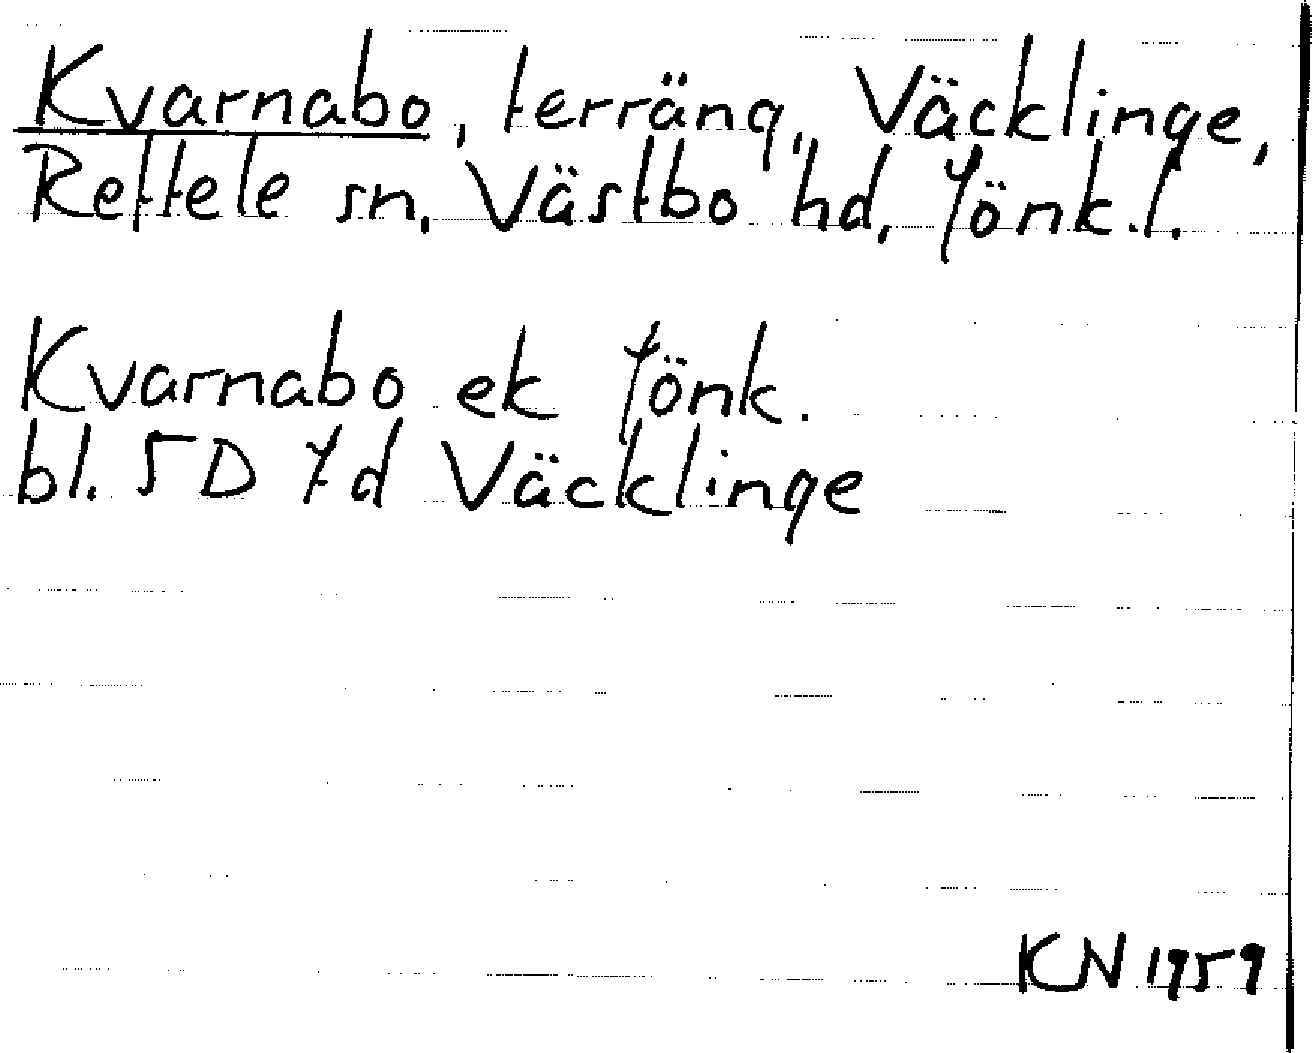 Kvarnabo, terräng, Väcklinge,
Reftele sn, Västbo hd, Jönk. l.
Kvarnabo ek Jönk.
bl. 5D 7d Väcklinge
KN 1959